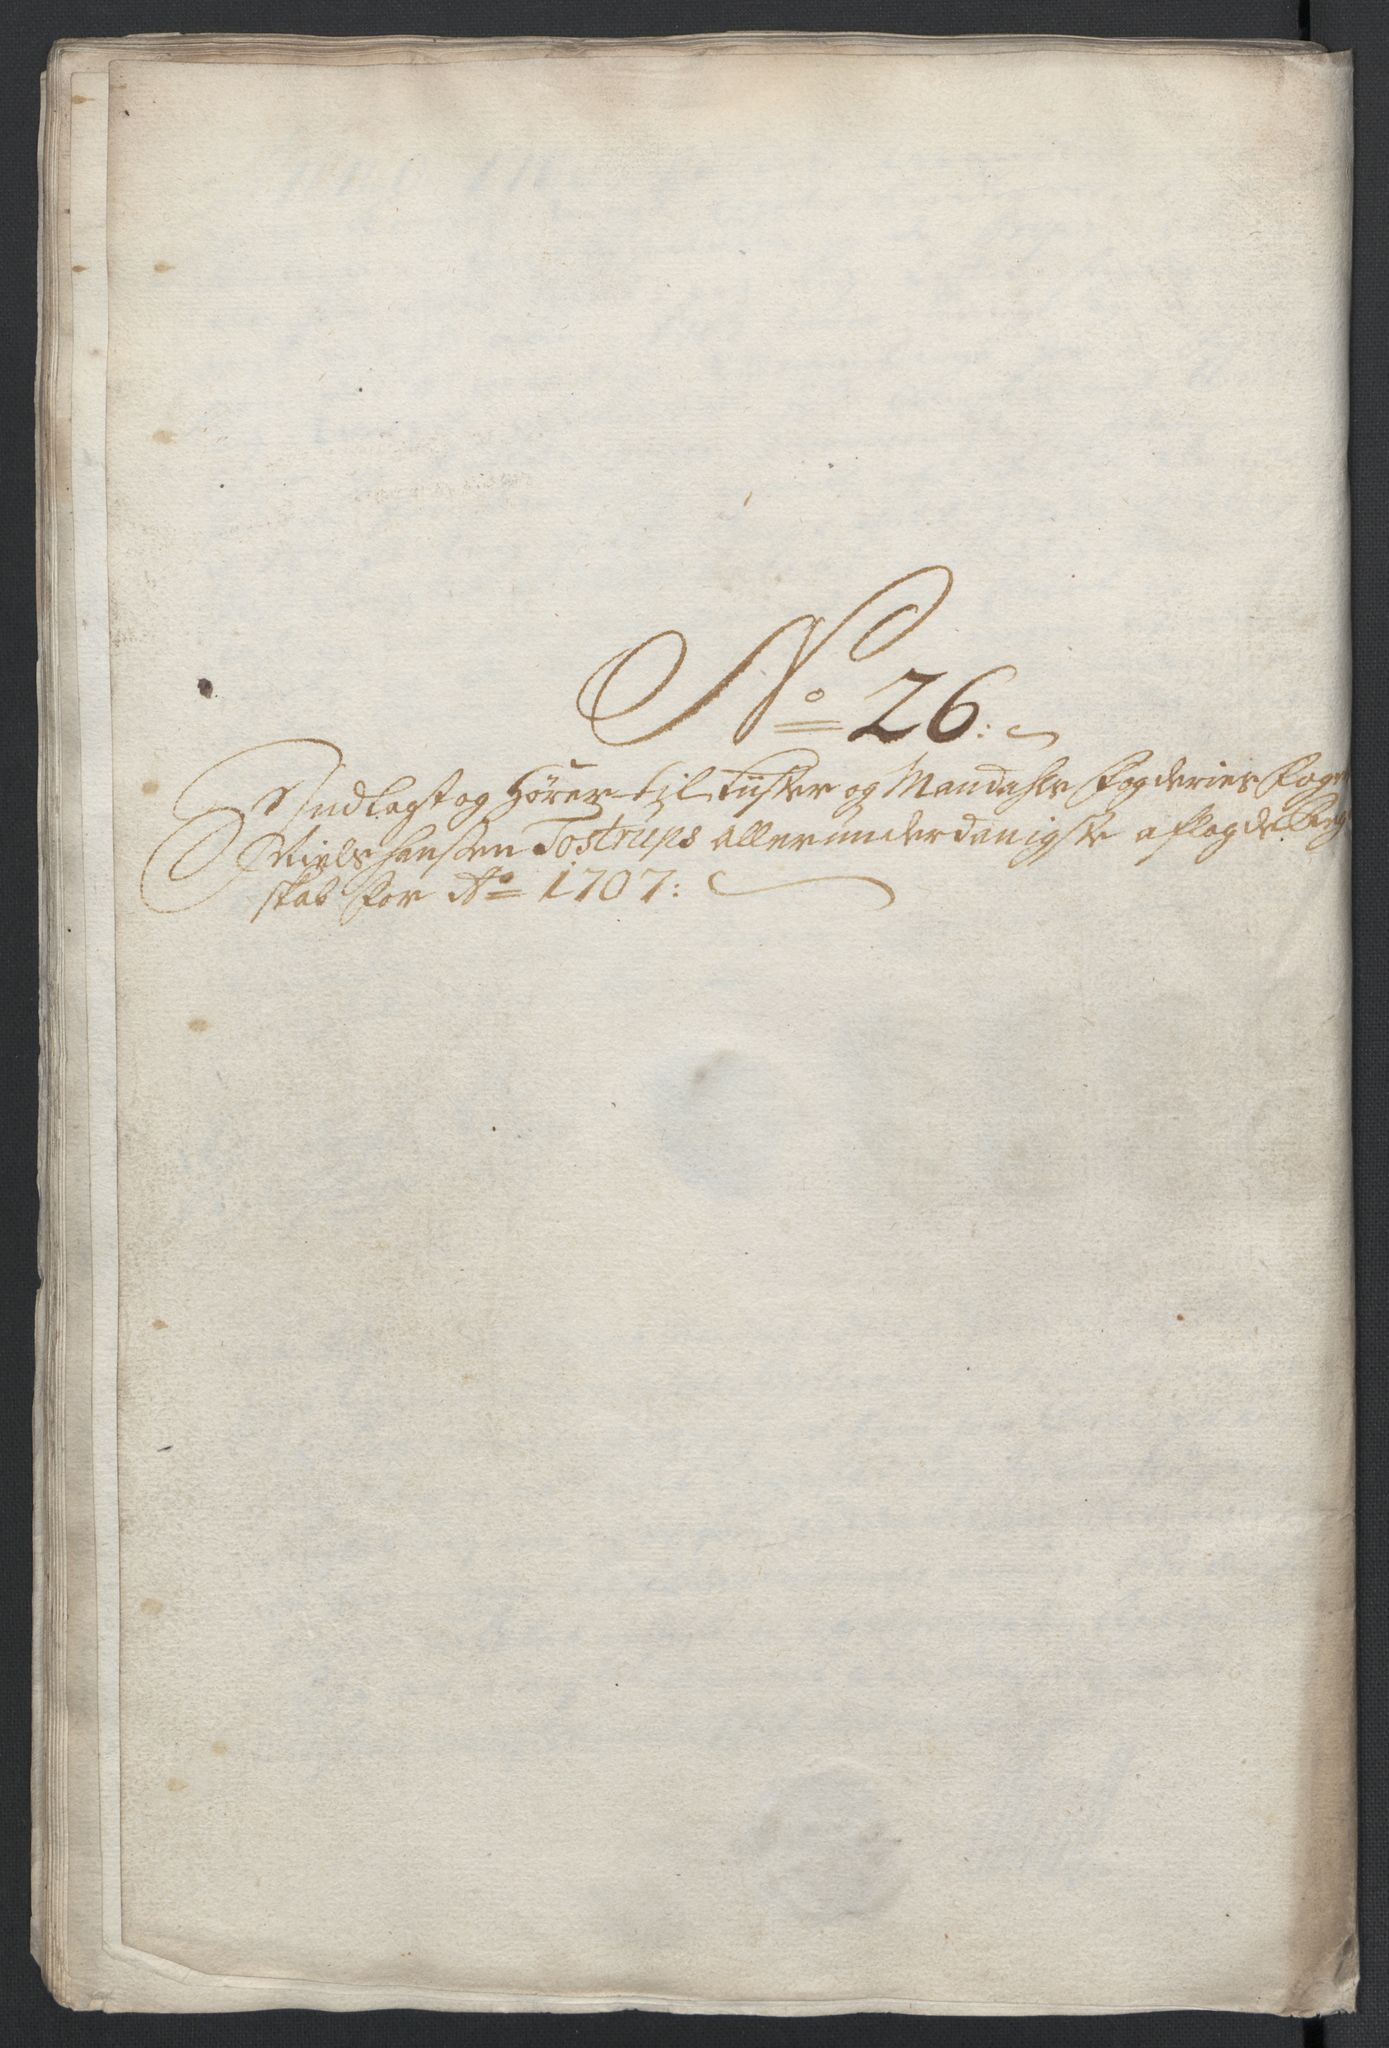 No 26:
Indlagt og Hører til Lister og Mandahls Fogderies Foget
Niels Hansen Tostrups allerunderdanigste aflagde Reg
skab for Ao 1707: